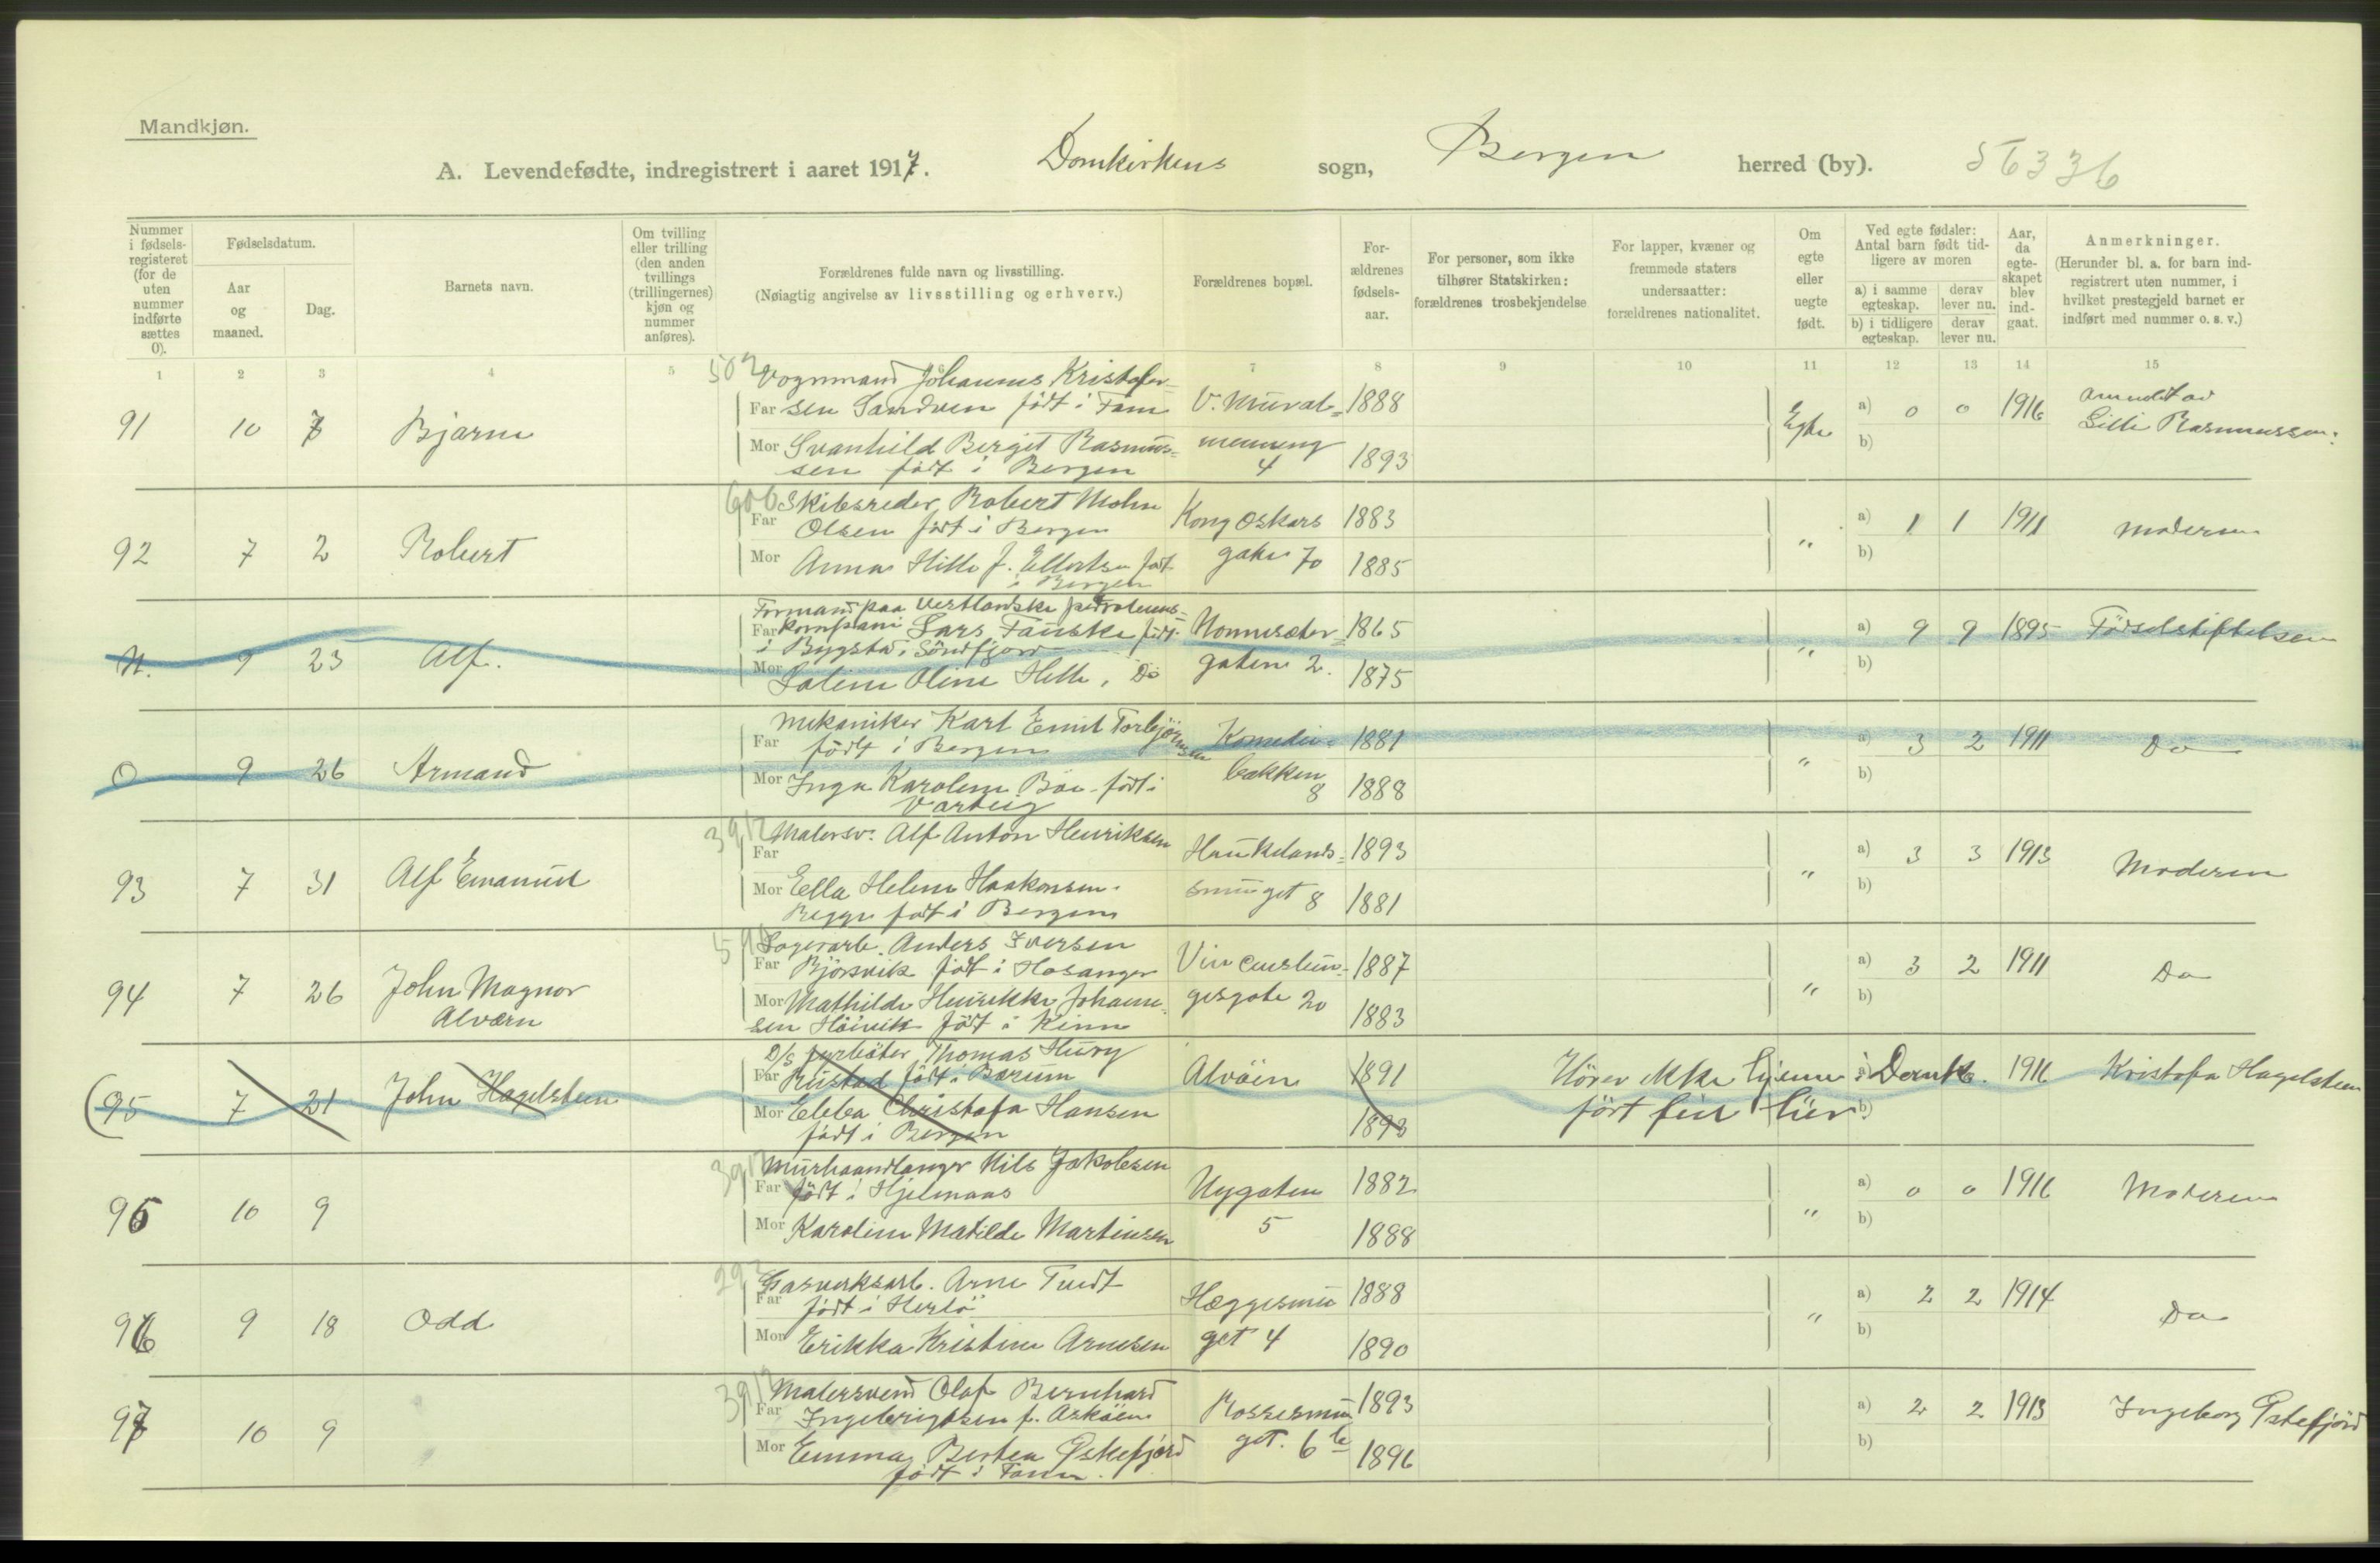 Mandkjøn.
A. Levendefødte, indregistrert i aaret 1917. Domkirkens sogn, Bergen herred (by). 56336
Nummer i fødsels-registeret (for de uten nummer indførte sættes 0).
Fødselsdatum.
Aar og maaned.
Dag.
Barnets navn.
Om tvilling eller trilling (den anden tvillings (trillingernes) kjøn og nummer anføres).
Forældrenes fulde navn og livsstilling.
(Nøiagtig angivelse av livsstilling og erhverv.)
Forældrenes bopæl.
For-ældrenes fødsels-aar.
For personer, som ikke tilhører Statskirken: forældrenes trosbekjendelse
For lapper, kvæner og fremmede staters undersaatter: forældrenes nationalitet.
Om egte eller uegte født.
Ved egte fødsler: Antal barn født tid-ligere av moren
a) i samme egteskap.
b) i tidligere egteskap.
derav lever nu.
derav lever nu.
Aar, da egte-skapet blev ind-gaat.
Anmerkninger.
(Herunder bl. a. for barn ind-registrert uten nummer, i hvilket prestegjeld barnet er indført med nummer o. s. v.)
1 2 3 4 5 6 7 8 9 10 11 12 13 14 15
Vognmand Johannes Kristofer=
Far sen Sandven født i Fane V. Mural= 1888
91 10 7 Bjarne Egte a) 0 0 1916 anmeldt av
Lilli Rasmussen.
Mor Svanhild Berget Rasmus= menning 1893 b)
sen født i Bergen 4
606 Skibsreder Robert Mohn
Far Olsen født i Bergen Kong Oskars 1883
92 7 2 Robert " a) 1 1 1911 Moderen
Mor Anna Hille f. Ellertsen født gate 70 1885 b)
i Bergen
Formand paa Vestlandske petroleums=
Far kompani Lars Fauske født Nonneseter= 1865
i Bygstad i Söndfjord
N. 9 23 Alf. " a) 9 9 1895 Fødselsstiftelsen
Mor Oline Helle, Do gaten 2. 1875 b)
Mekaniker Karl Emil Torbjörnsen
Far født i Bergen Komedie= 1881
0 9 26 Armand " a) 3 2 1911 Do
Mor Inga Karoline Böe født i bakken 8 1888 b)
Varteig
Malersv. Alf Anton Henriksen
Far Haukelands= 1893
93 7 31 Alf Emanuel " a) 3 3 1913 Moderen
Mor Ella Helene Haakonsen. smuget 8 1881 b)
Begge født i Bergen
Lagerarb. Anders Iversen
Far Björsvik født i Hosanger 1887
94 7 26 John Magnor Alværn " a) 3 2 1911 Do
Mor Mathilde Henrikke Johanne= gesgate 20 1883 b)
sen født i Kinn
D/s fyrbøter Thomas
Far Rustad født i Bærum Alvöen 1891 Hörer ikke hjemme i Domk. 1916 Kristofa Hagelsteen
(95 7 21 John Hagelsteen
Mor Ebba Christofa Hansen 1893 fört feil her b)
født i Bergen
Murhaandlanger Nils Jakobsen
Far født i Hjelmaas Nygaten 1882
95 10 9 " a) 0 0 1916 Moderen
Mor Karoline Matilde Martinsen 5 1888 b)
Gasverksarb. Arne Tvedt
Far født i Herlö Hæggesmu 1888
96 9 18 Odd " a) 2 2 1914 Do
Mor Erikka Kristine Arnesen get 4 1890 b)
Malersvend Olaf Bernhard
Far Ingebrigtsen f. Asköen Rossesmu 1893
97 10 9 a) 2 2 1913 Ingeborg
Mor Emma Bertea get. 6 b 1896 b)
født i Fane.